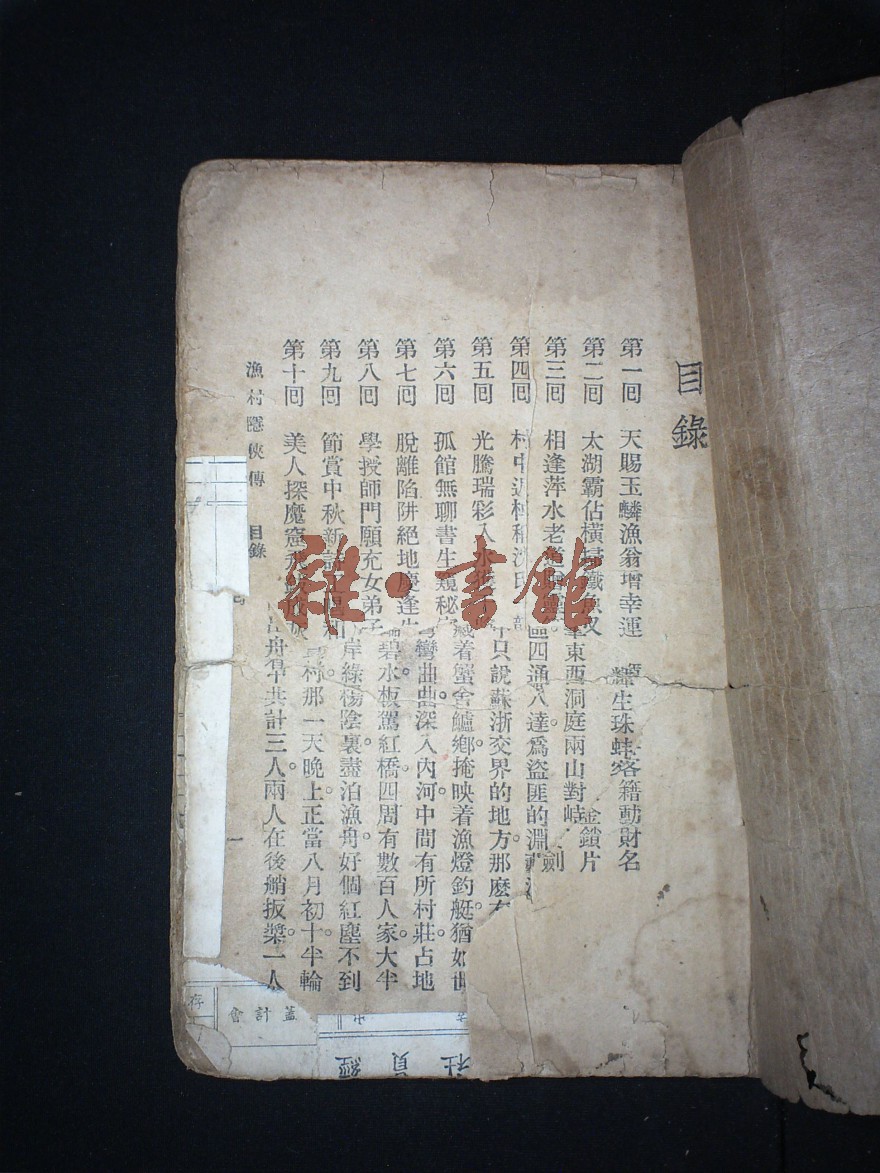 目錄
第一回　天賜玉麟漁翁增幸運　生珠蚌客籍動財名
第二回　太湖霸佔橫 鐵魚叉 東西洞庭兩山對峙 金鎖片
第三回　相逢萍水老 區四通八達爲盜匪的淵 劍
第四回　村中 只說蘇浙交界的地方那麼
第五回　光騰瑞彩入水 藏着蟹舍鱸鄉。掩映着漁燈釣艇。猶如世
第六回　孤館無聊書生窺秘 彎曲曲深入內河中間有所村莊占地
第七回　脫離陷阱絕地慶逢生 碧水板駕紅橋。四周有數百人家。大半
第八回　學授師門願充女弟子 岸綠楊陰裏。盡泊漁舟。好個紅塵不到
第九回　節賞中秋新 村那一天晚上。正當八月初。十半輪
第十回　美人探魔窟 舟 共計三人。兩人在後艄扳槳。一人
漁村隱俠傳　目錄
一
雜·書館
存
會計
經
員
社